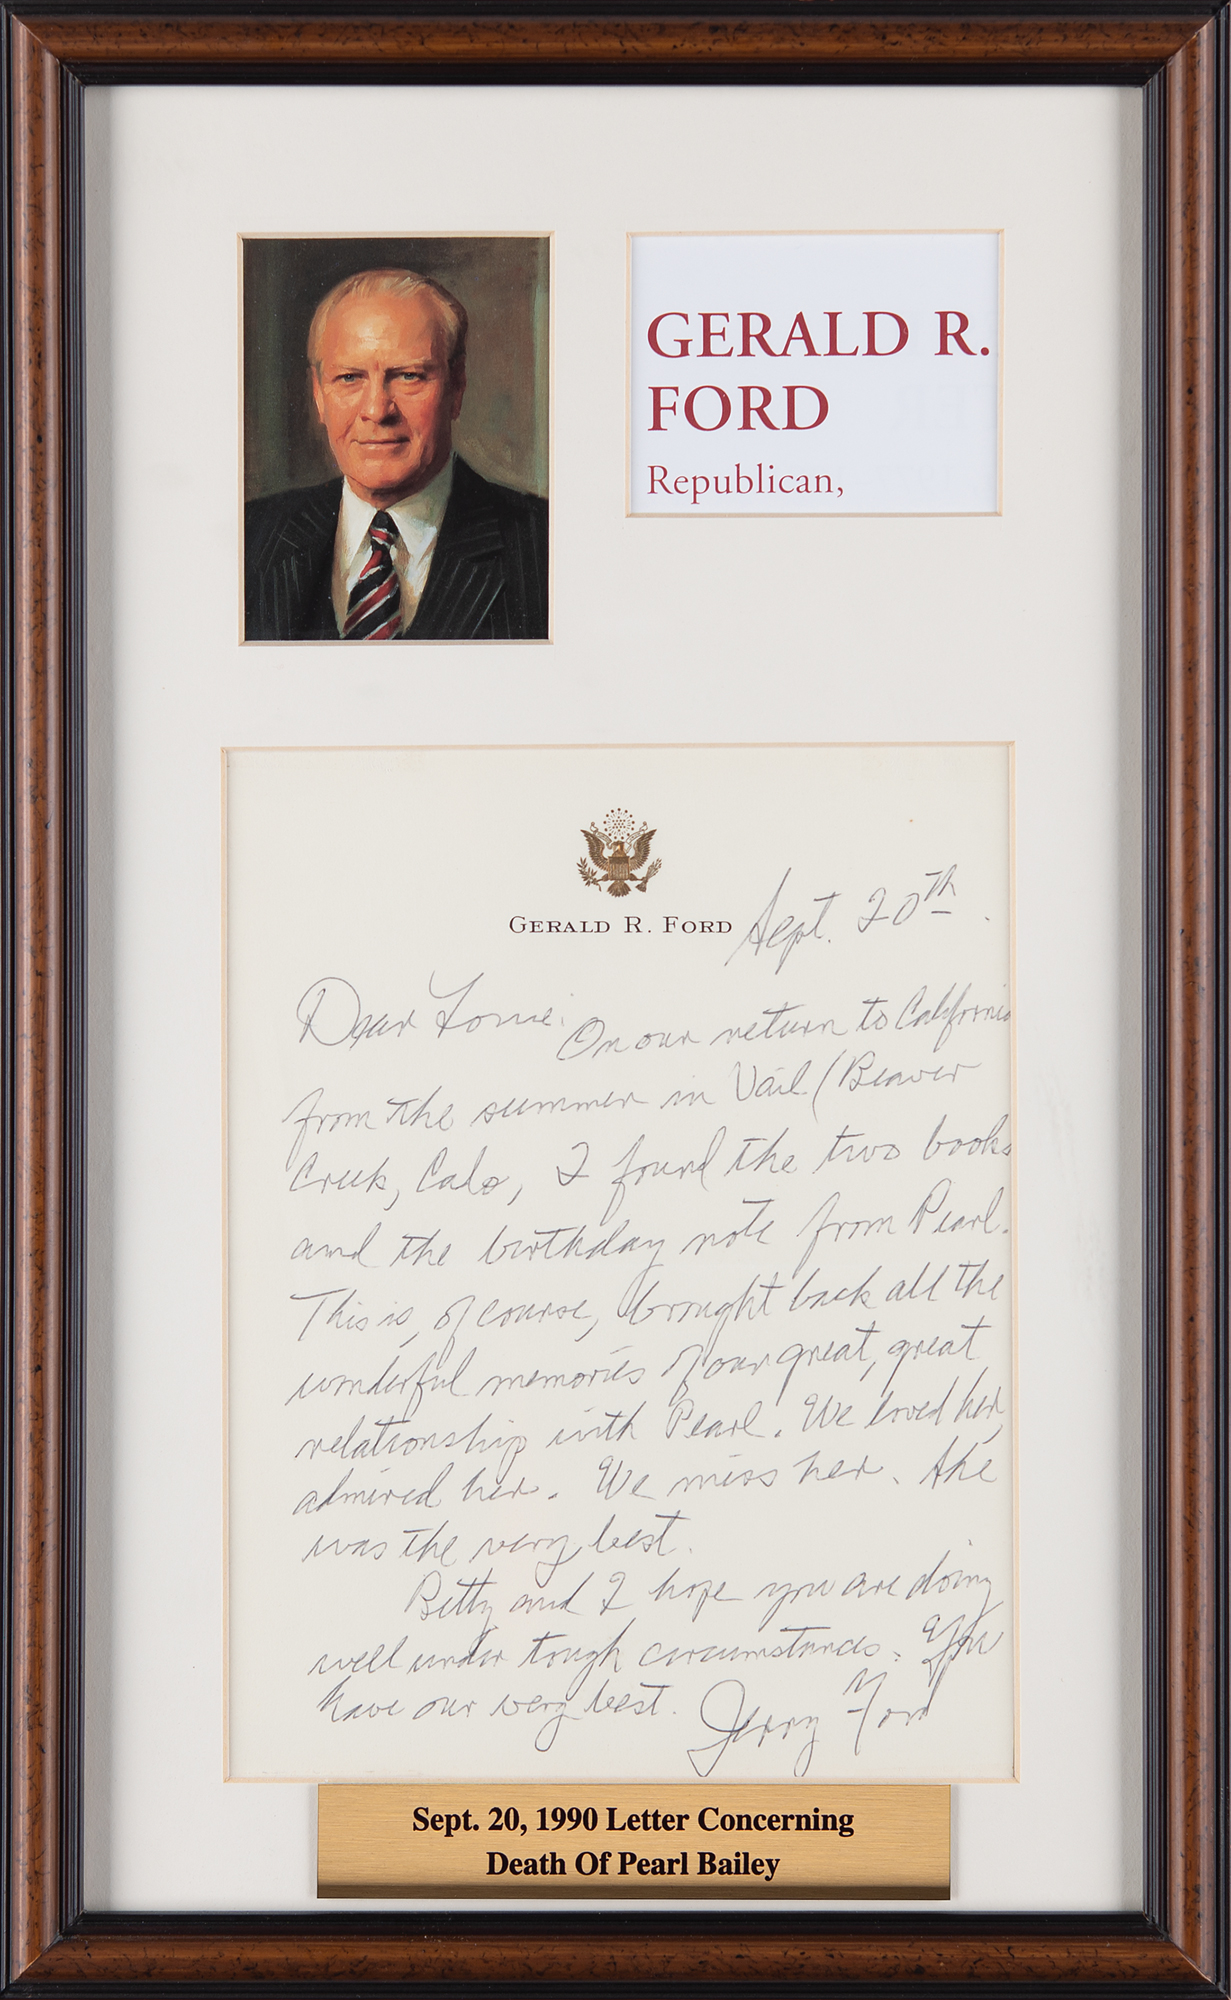 GERALD R.
FORD
Republican,
GERALD R. FORD
Sept. 20th.
Dear Louie:
On our return to California
from the summer in Vail/Beaver
Creek, Colo, I found the two books
and the birthday note from Pearl.
This is, of course, brought back all the
wonderful memories of our great, great
relationship with Pearl. We loved her,
admired her. We miss her. She
was the very best.
Betty and I hope you are doing
well under tough circumstances. You
have our very best. Jerry Ford
Sept. 20, 1990 Letter Concerning
Death Of Pearl Bailey